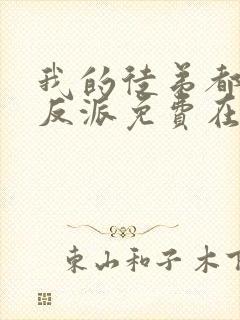 我的徒弟都
反派免費在
東山和子木下